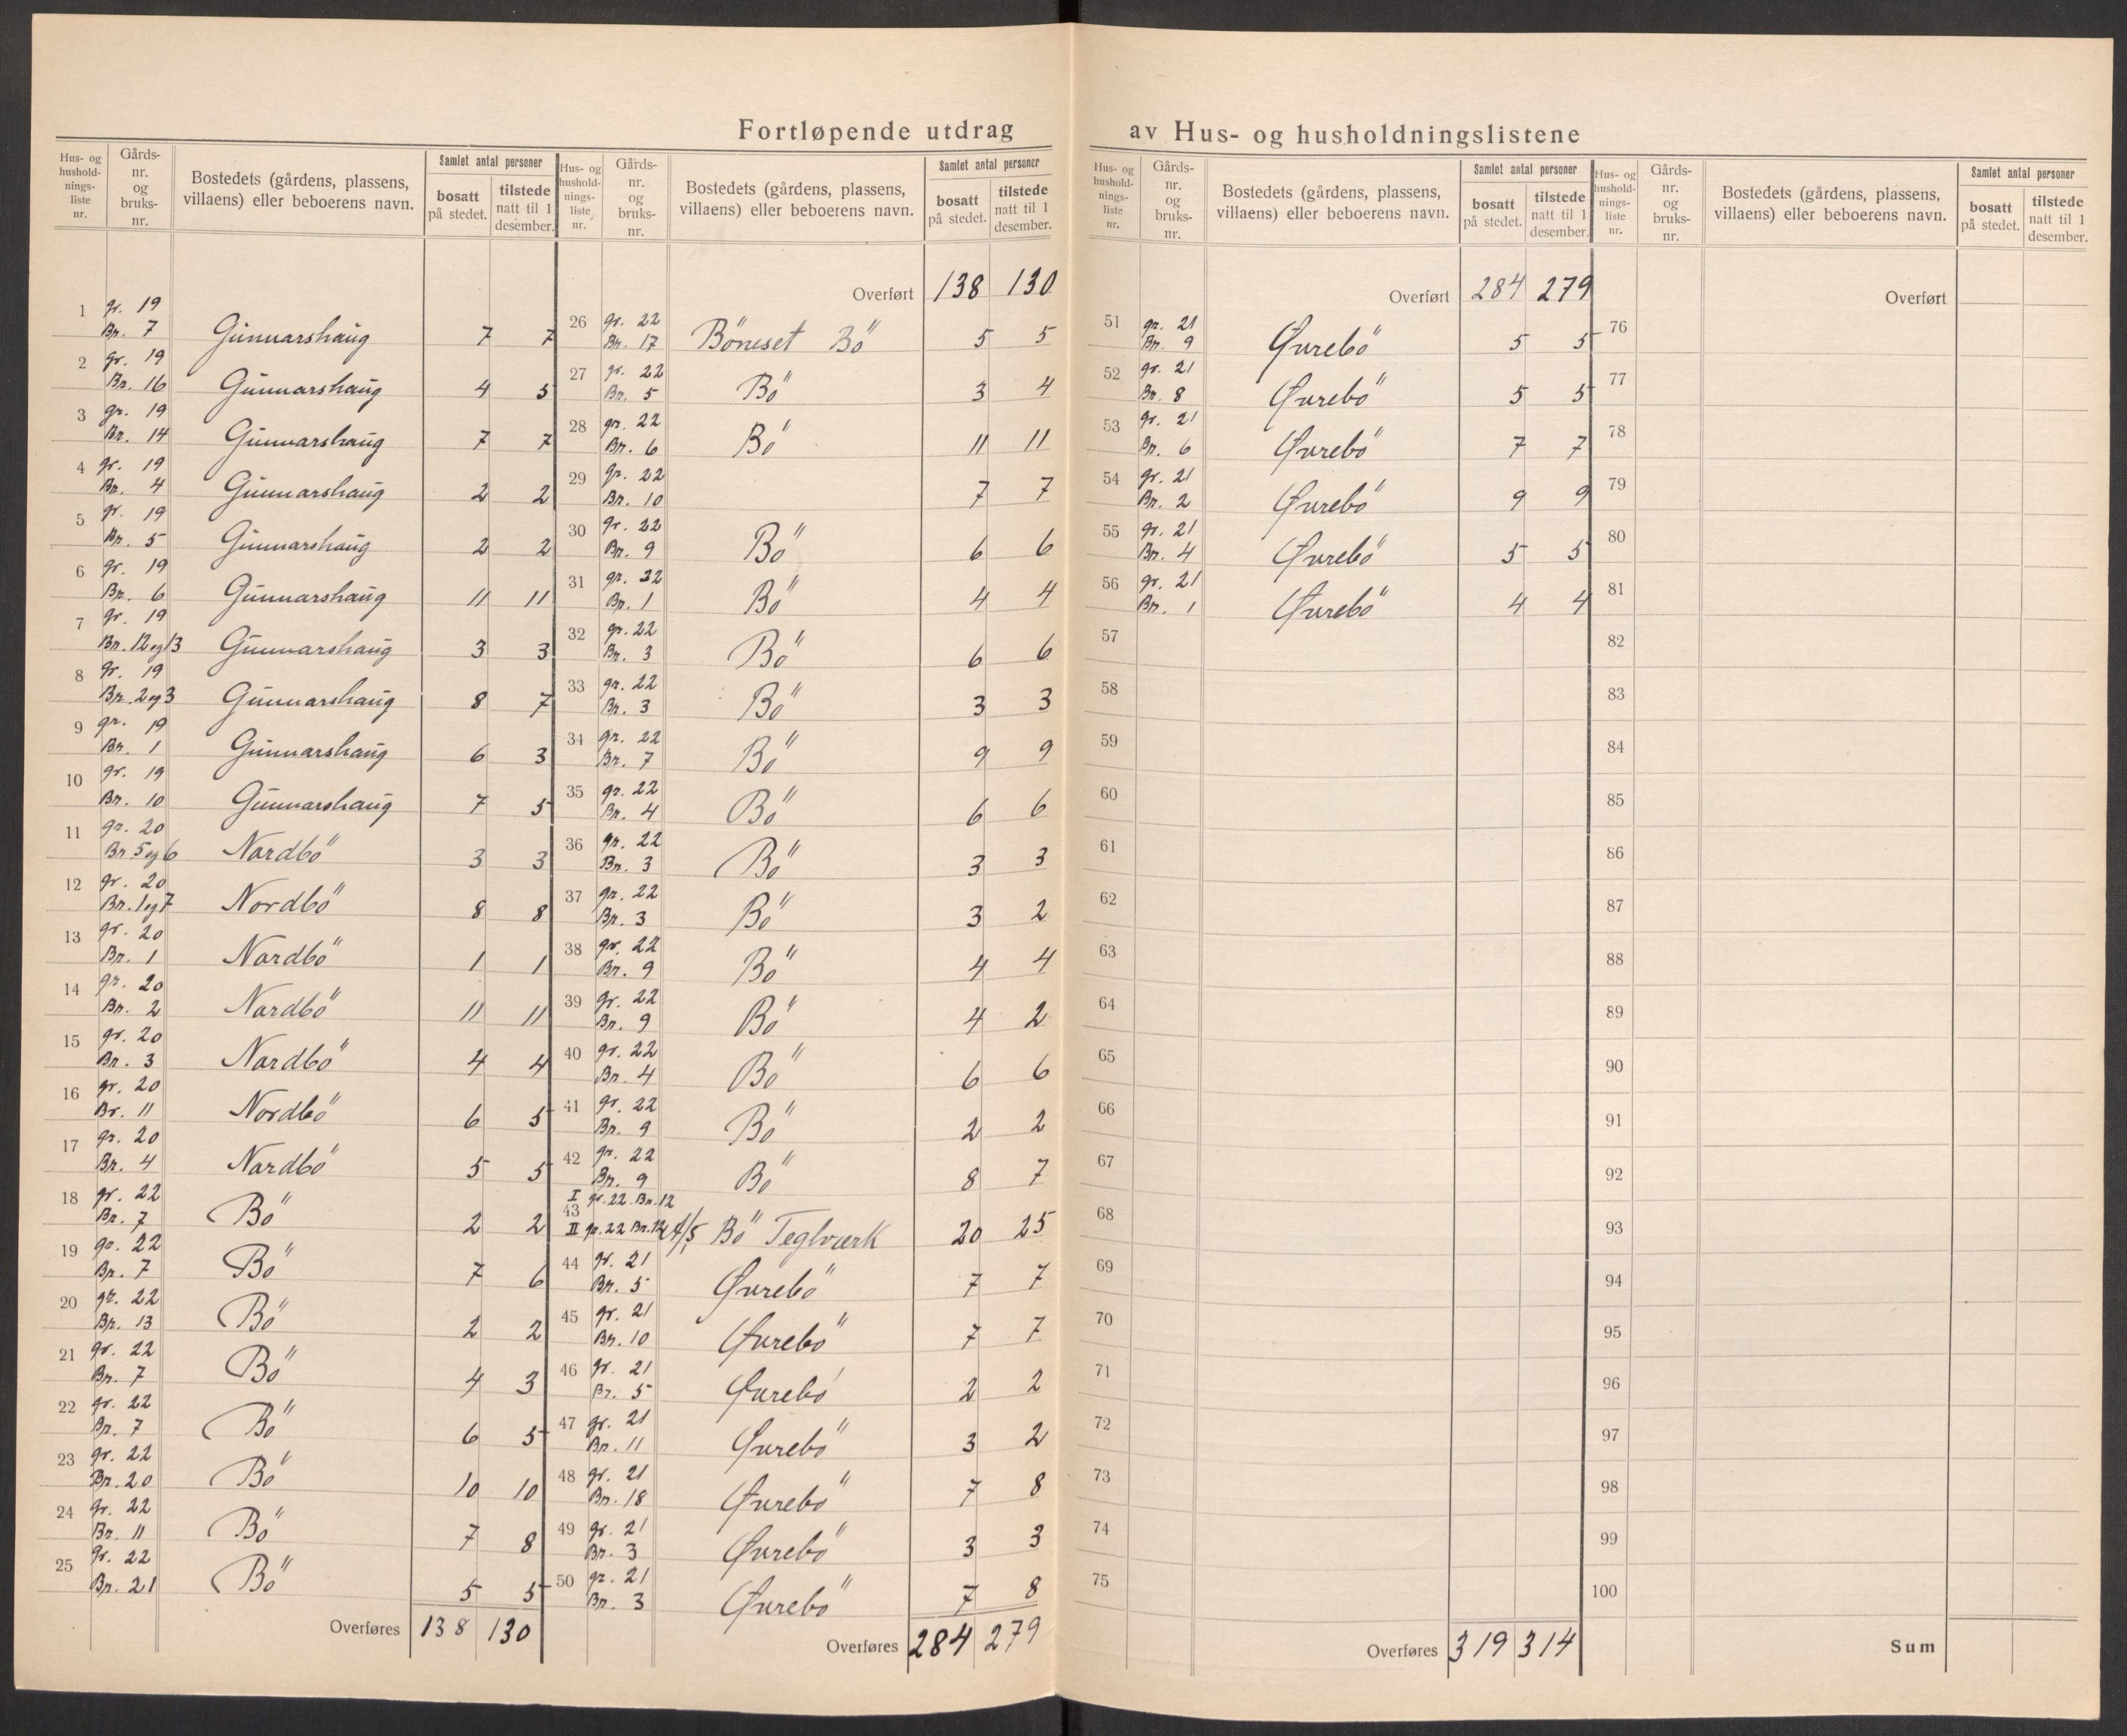 Fortløpende utdrag av Hus- og husholdningslistene
Hus- og husholdnings-liste nr. Gårds-nr. og bruks-nr. Bostedets (gårdens, plassens, villaens) eller beboerens navn. Samlet antal personer bosatt på stedet. tilstede natt til 1 desember.
1 gr. 19 Br. 7 Gunnarshaug 7 7
2 gr. 19 Br. 16 Gunnarshaug 4 5
3 gr. 19 Br. 14 Gunnarshaug 7 7
4 gr. 19 Br. 4 Gunnarshaug 2 2
5 gr. 19 Br. 5 Gunnarshaug 2 2
6 gr. 19 Br. 6 Gunnarshaug 11 11
7 gr. 19 Br. 12 og 13 Gunnarshaug 3 3
8 gr. 19 Br. 2 og 3 Gunnarshaug 8 7
9 gr. 19 Br. 1 Gunnarshaug 6 3
10 gr. 19 Br. 10 Gunnarshaug 7 5
11 gr. 20 Br 5 og 6 Nordbö 3 3
12 gr. 20 Br. 1 og 7 Nordbö 8 8
13 gr. 20 Br. 1 Nordbö 1 1
14 gr. 20 Br. 2 Nordbö 11 11
15 gr. 20 Br. 3 Nordbö 4 4
16 gr. 20 Br. 11 Nordbö 6 5
17 gr. 20 Br. 4 Nordbö 5 5
18 gr. 22 Br. 7 Bö 2 2
19 gr. 22 Br. 7 Bö 7 6
20 gr. 22 Br. 13 Bö 2 2
21 gr. 22 Br. 7 Bö 4 3
22 gr. 22 Br. 7 Bö 6 5
23 gr. 22 Br. 20 Bö 10 10
24 gr. 22 Br. 11 Bö 7 8
25 gr. 22 Br. 21 Bö 5 5
Overføres 138 130
Hus- og husholdnings-liste nr. Gårds-nr. og bruks-nr. Bostedets (gårdens, plassens, villaens) eller beboerens navn. Samlet antal personer bosatt på stedet. tilstede natt til 1 desember.
Overført 138 130
26 gr. 22 Br. 17 Böneset Bö 5 5
27 gr. 22 Br. 5 Bö 3 4
28 gr. 22 Br. 6 Bö 11 11
29 gr. 22 Br. 10 7 7
30 gr. 22 Br. 9 Bö 6 6
31 gr. 22 Br. 1 Bö 4 4
32 gr. 22 Br. 3 Bö 6 6
33 gr. 22 Br. 3 Bö 3 3
34 gr. 22 Br. 7 Bö 9 9
35 gr. 22 Br. 4 Bö 6 6
36 gr. 22 Br. 3 Bö 3 3
37 gr. 22 Br. 3 Bö 3 2
38 gr. 22 Br. 9 Bö 4 4
39 gr. 22 Br. 9 Bö 4 2
40 gr. 22 Br. 4 Bö 6 6
41 gr. 22 Br. 9 Bö 2 2
42 gr. 22 Br. 9 Bö 8 7
I gr. 22 Br. 12
43 II gr. 22 Br. 12 A/S Bö Teglværk 20 25
44 gr. 21 Br. 5 Øvrebö 7 7
45 gr. 21 Br. 10 Øvrebö 7 7
46 gr. 21 Br. 5 Øvrebö 2 2
47 gr. 21 Br. 11 Øvrebö 3 2
48 gr. 21 Br. 18 Øvrebö 7 8
49 gr. 21 Br. 3 Øvrebö 3 3
50 gr. 21 Br. 3 Øvrebö 7 8
Overføres 284 279
Hus- og husholdnings-liste nr. Gårds-nr. og bruks-nr. Bostedets (gårdens, plassens, villaens) eller beboerens navn. Samlet antal personer bosatt på stedet. tilstede natt til 1 desember.
Overført 284 279
51 gr. 21 Br. 9 Øvrebö 5 5
52 gr. 21 Br. 8 Øvrebö 5 5
53 gr. 21 Br. 6 Øvrebö 7 7
54 gr. 21 Br. 2 Øvrebö 9 9
55 gr. 21 Br. 4 Øvrebö 5 5
56 gr. 21 Br. 1 Øvrebö 4 4
57
58
59
60
61
62
63
64
65
66
67
68
69
70
71
72
73
74
75
Overføres 319 314
Hus- og husholdnings-liste nr. Gårds-nr. og bruks-nr. Bostedets (gårdens, plassens, villaens) eller beboerens navn. Samlet antal personer bosatt på stedet. tilstede natt til 1 desember.
Overført
76
77
78
79
80
81
82
83
84
85
86
87
88
89
90
91
92
93
94
95
96
97
98
99
100
Sum